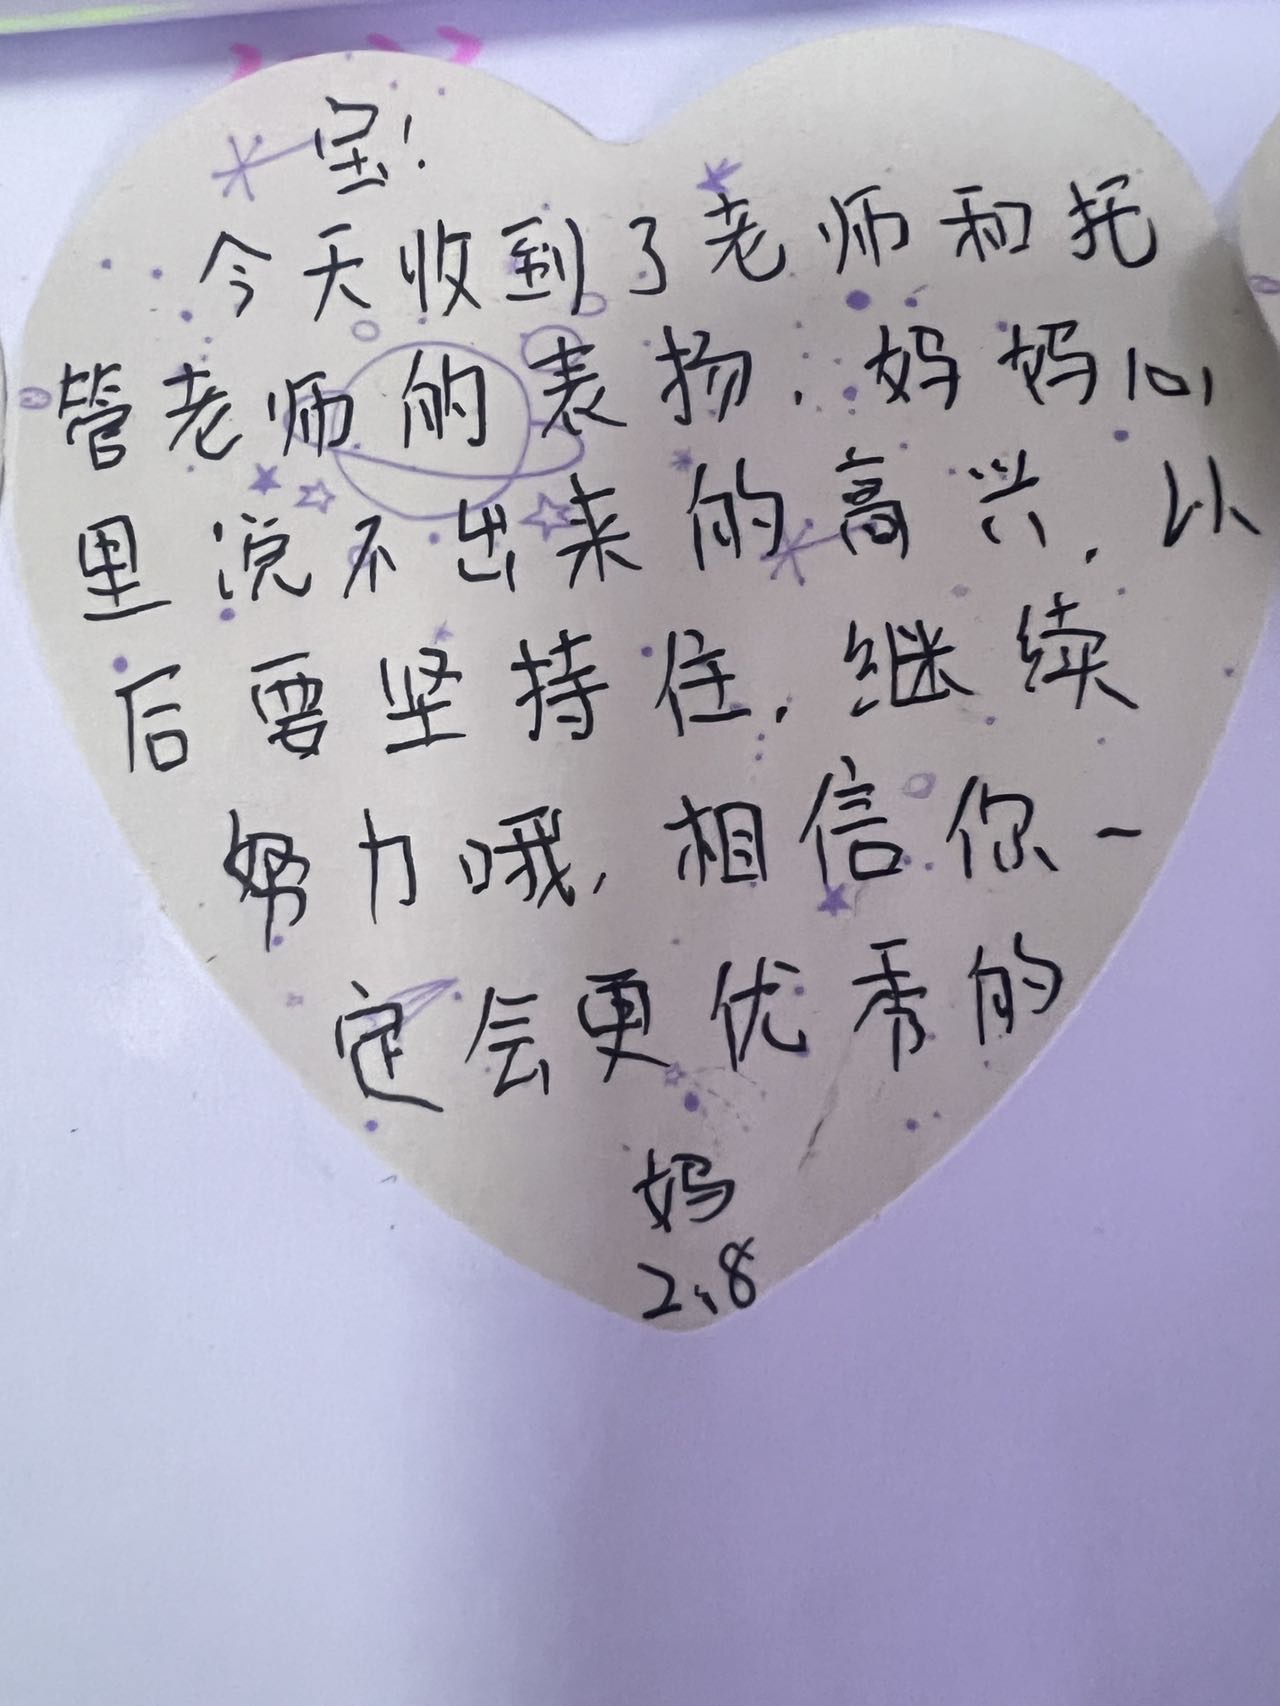 宝!
今天收到了老师和托
管老师的表扬.妈妈心
里说不出来的高兴.以
后要坚持住.继续
努力哦,相信你一
定会更优秀的
妈
2.8